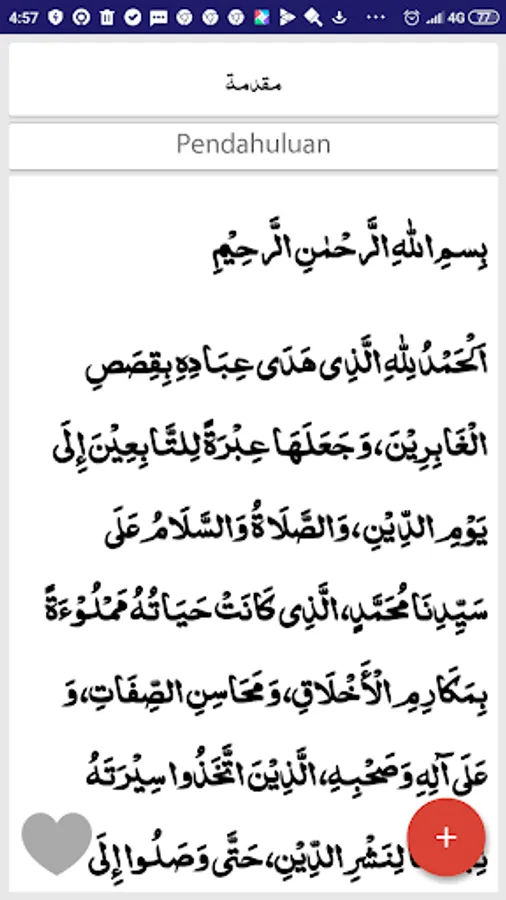 4:57 4G 77
مقدمة
Pendahuluan
بِسمِ اللهِ الرَّحْمٰنِ الرَّحِيْمِ
اَلْحَمْدُ لِلّٰهِ الَّذِى هَدَى عِبَادِهِ بِقِصَصِ
الْغَابِرِيْنَ، وَجَعَلَهَا عِبْرَةً لِلتَّابِعِيْنَ إِلَى
يَوْمِ الدِّيْنِ، وَالصَّلَاةُ وَالسَّلَامُ عَلَى
سَيِّدِنَا مُحَمَّدٍ، الَّذِى كَانَتْ حَيَاتُهُ مَمْلُوْءَةً
بِمَكَارِمِ الْأَخْلَاقِ، وَمَحَاسِنِ الصِّفَاتِ، وَ
عَلَى آلِهِ وَصَحْبِهِ، الَّذِيْنَ اتَّخَذُوا سِيْرَتَهُ
لِنَشْرِ الدِّيْنِ، حَتَّى وَصَلُوا إِلَى